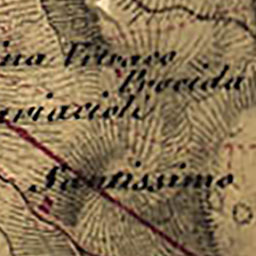 ina Vitraro
Procida
ariacioli
Santissimo